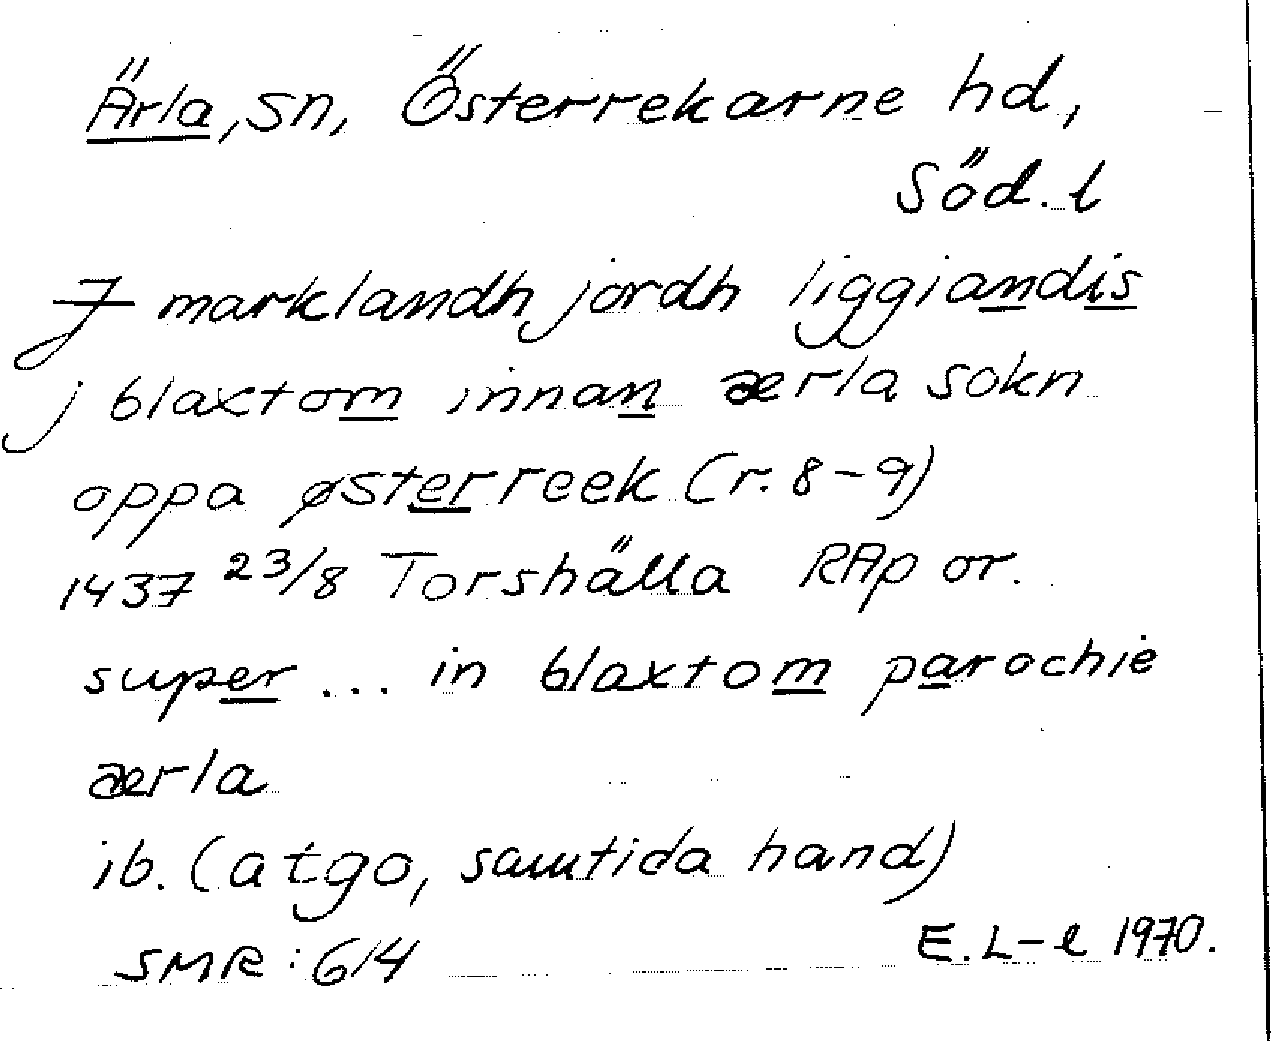 Ärla, sn, Österrekarne hd,
Söd. l
J marklandh jordh liggiandis
j blaxtom innan ærla sokn
oppa østerreek (r. 8-9)
1437 23/8 Torshälla RAp or.
super ... in blaxtom parochie
ærla
ib. (atgo, samtida hand)
SMR: 614
E. L-l 1970.